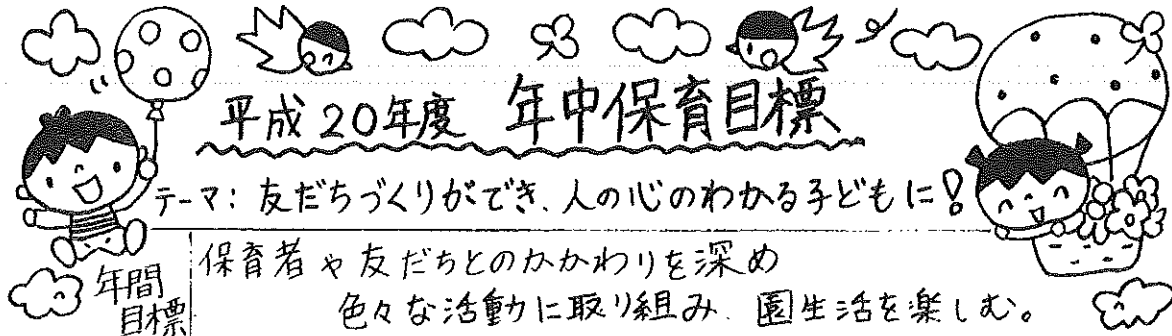 平成20年度 年中保育目標
テーマ: 友だちづくりができ、人の心のわかる子どもに!
年間
目標
保育者や友だちとのかかわりを深め
色々な活動に取り組み、園生活を楽しむ。